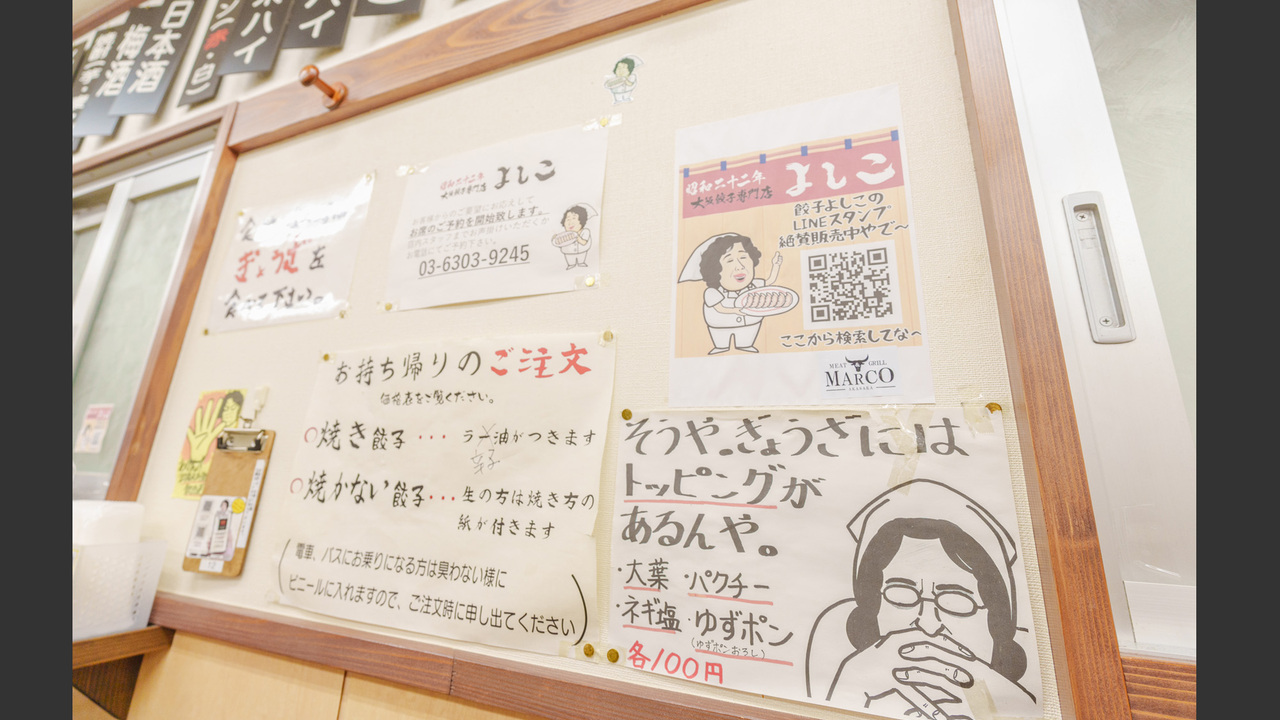 日本酒
梅酒
ハイ
ぎょうざ
昭和二十二年
大阪餃子専門店
よしこ
お客様からのご要望にお応えして
お席のご予約を開始致します。
お電話にてご予約下さい。
03-6303-9245
昭和二十二年
大阪餃子専門店
よしこ
餃子よしこの
LINEスタンプ
絶賛販売中やで〜
ここから検索してな〜
MEAT GRILL
MARCO
お持ち帰りのご注文
価格表をご覧ください。
○焼き餃子・・・ラー油がつきます
辛子
○焼かない餃子・・・生の方は焼き方の
紙が付きます
(電車、バスにお乗りになる方は臭わない様に
ビニールに入れますので、ご注文時に申し出てください)
そうや。ぎょうざには
トッピングが
あるんや。
・大葉 ・パクチー
・ネギ塩 ・ゆずポン
(ゆずポンおろし)
各100円